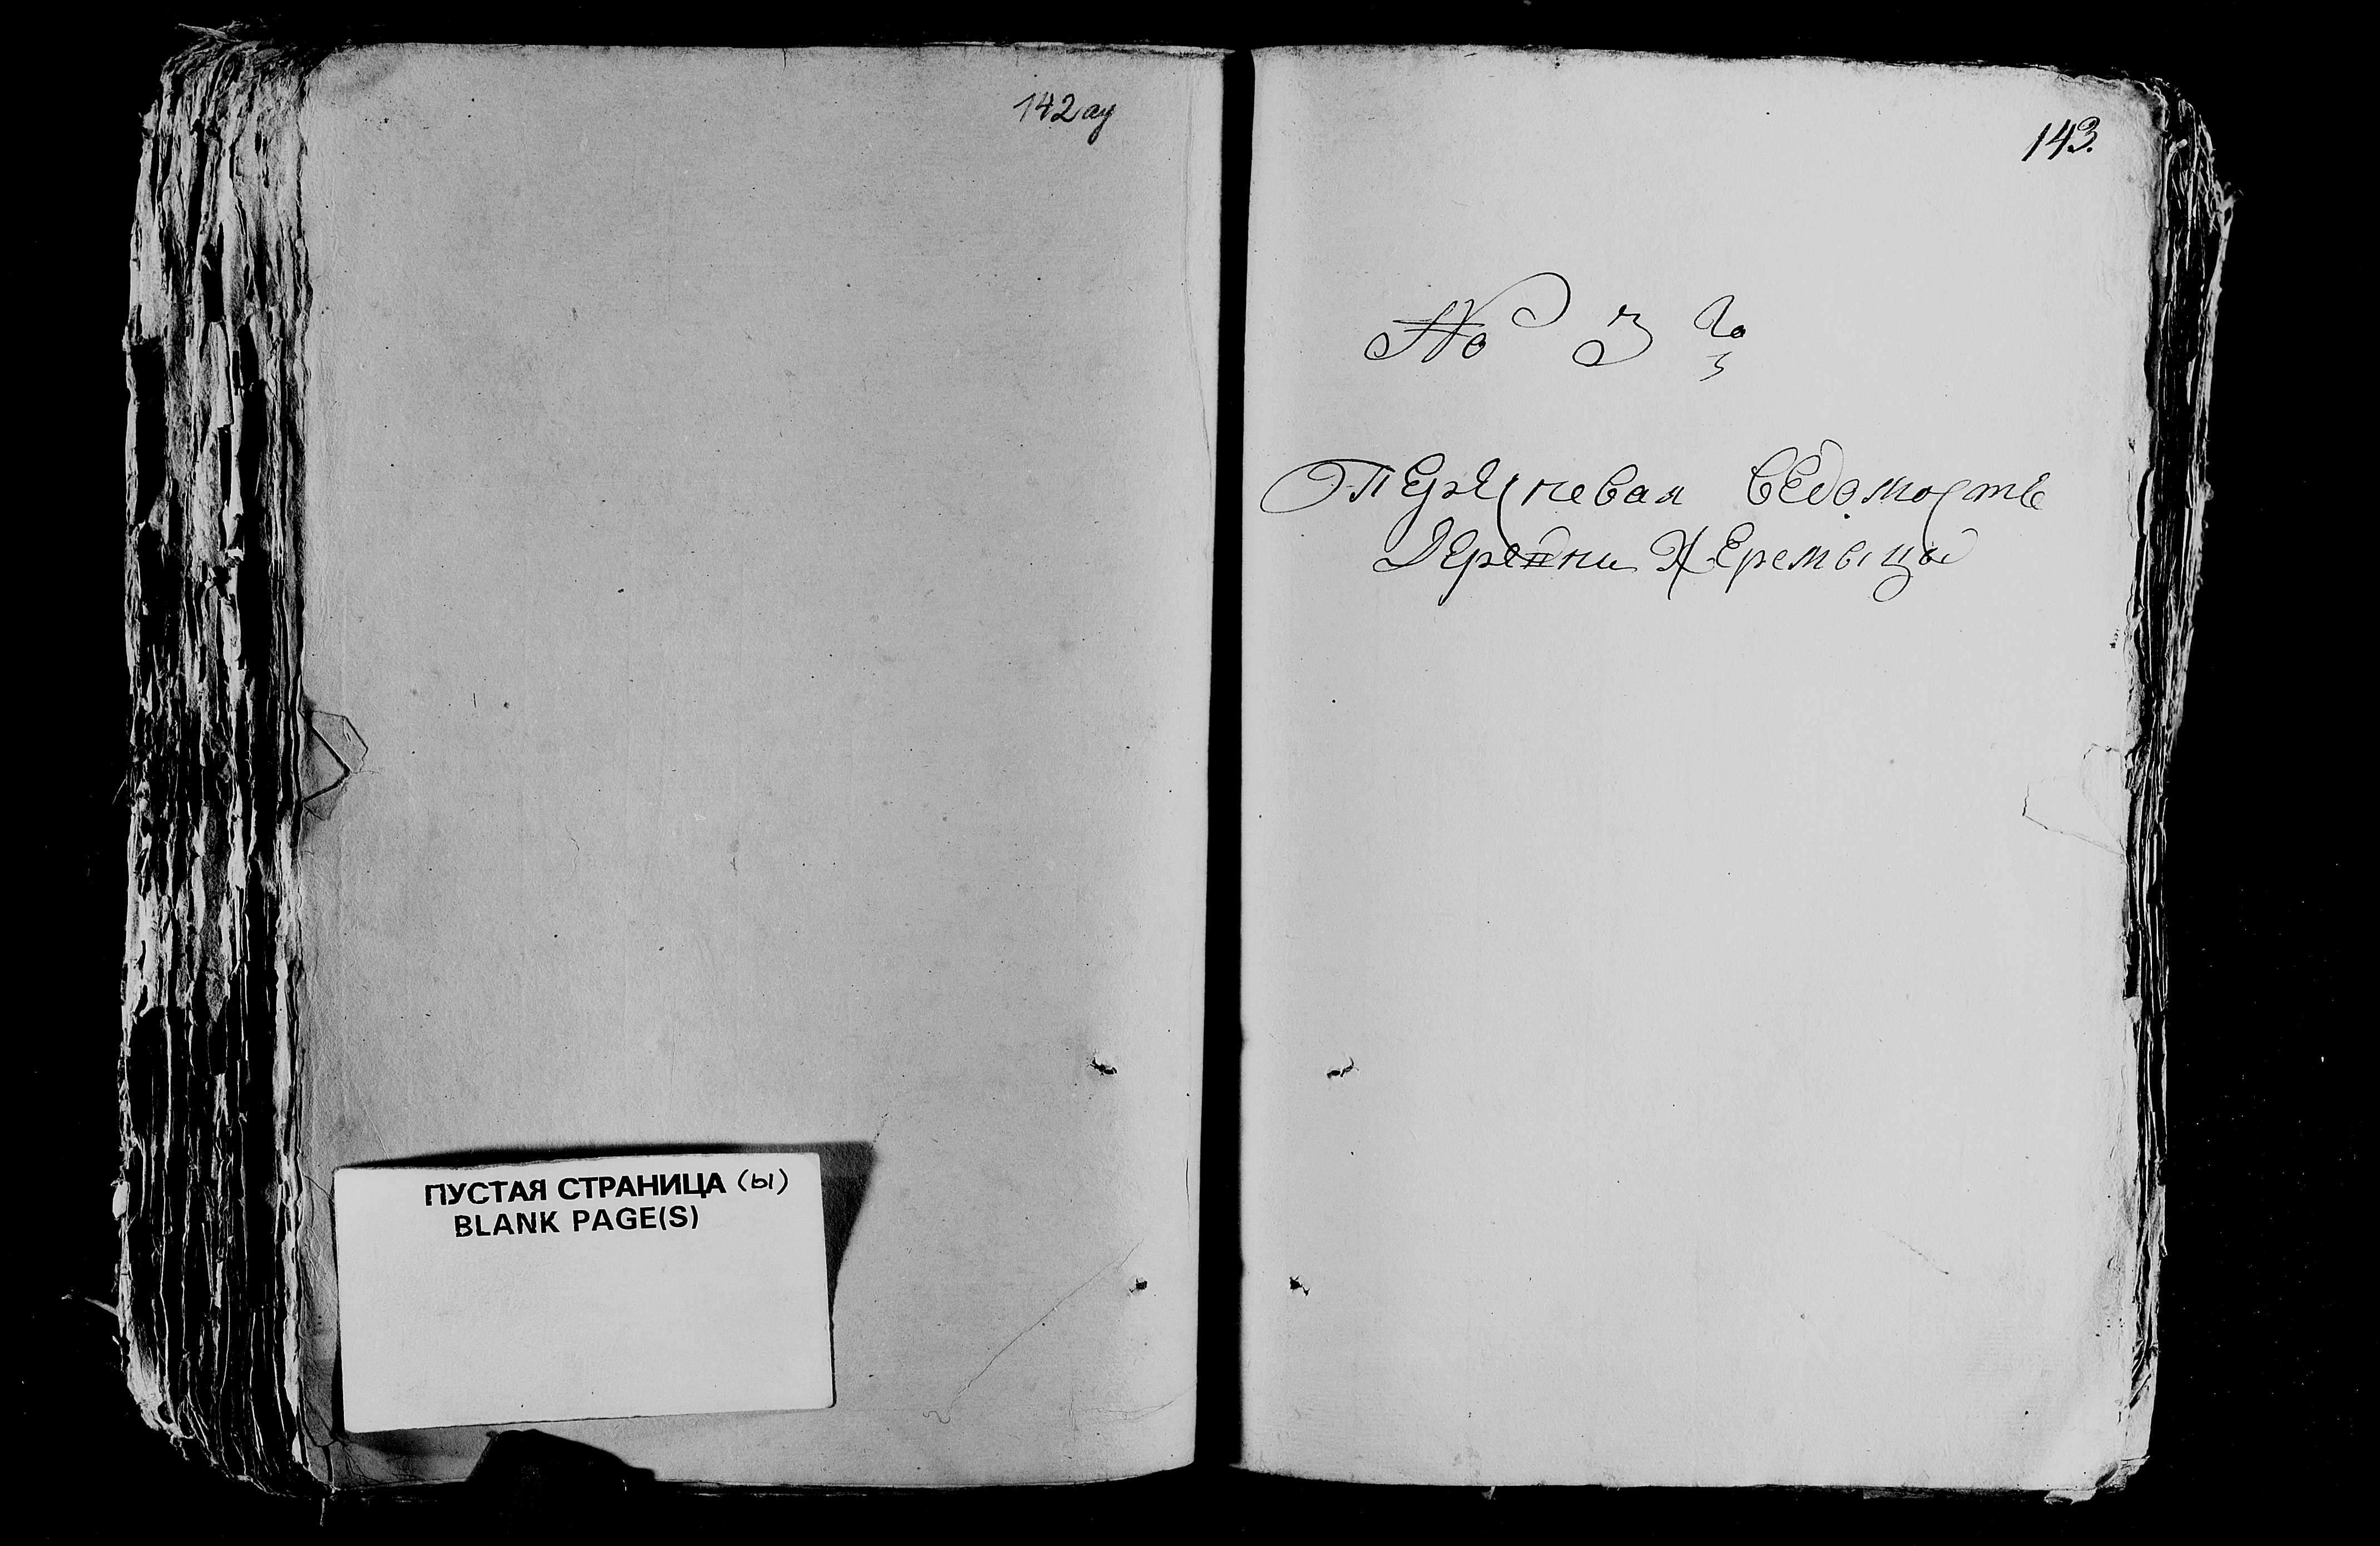 142ау
ПУСТАЯ СТРАНИЦА (ы)
BLANK PAGE(S)
143.
№ 3 го
3
Перечневая ведомость
Деревни Жеремыцы